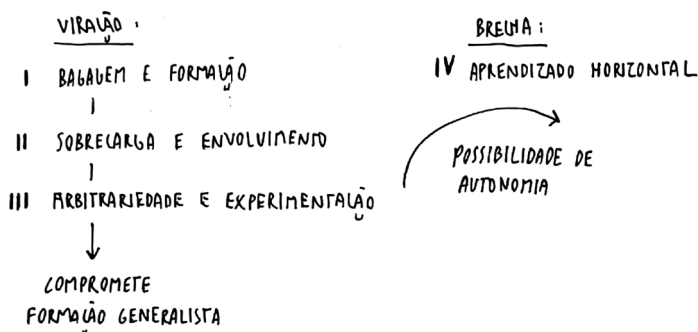 VIRAÇÃO:
I BAGAGEM E FORMAÇÃO
II SOBRECARGA E ENVOLVIMENTO
III ARBITRARIEDADE E EXPERIMENTAÇÃO
COMPROMETE
FORMAÇÃO GENERALISTA
BRECHA:
IV APRENDIZADO HORIZONTAL
POSSIBILIDADE DE
AUTONOMIA